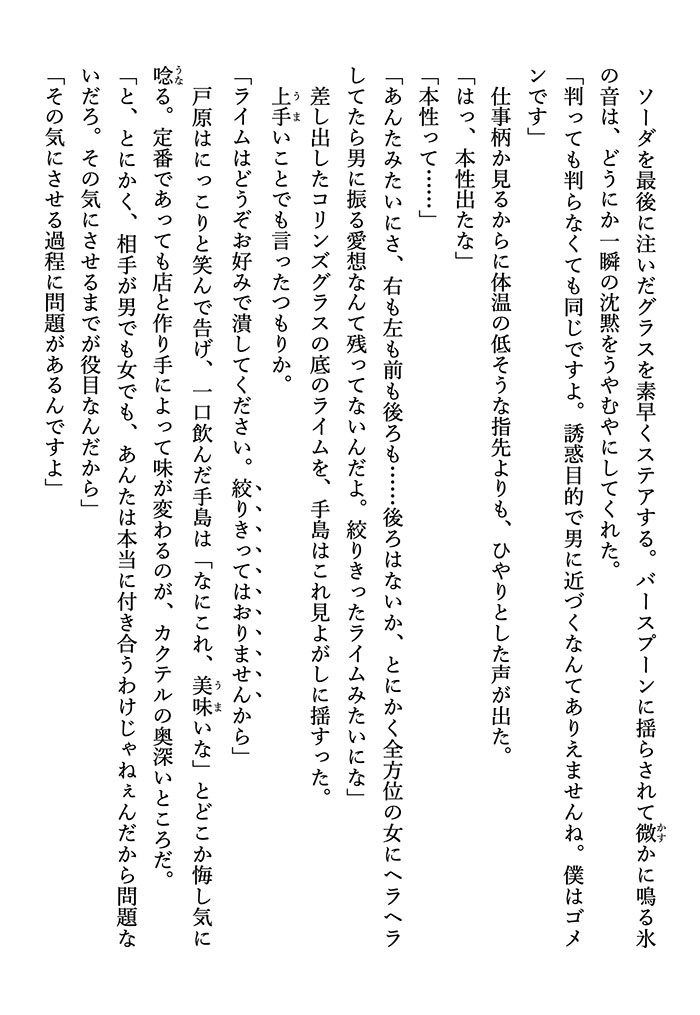 ソーダを最後に注いだグラスを素早くステアする。バースプーンに揺らされて微かに鳴る氷
の音は、どうにか一瞬の沈黙をうやむやにしてくれた。
「判っても判らなくても同じですよ。誘惑目的で男に近づくなんてありえませんね。僕はゴメ
ンです」
仕事柄か見るからに体温の低そうな指先よりも、ひやりとした声が出た。
「はっ、本性出たな」
「本性って……」
「あんたみたいにさ、右も左も前も後ろも……後ろはないか、とにかく全方位の女にヘラヘラ
してたら男に振る愛想なんて残ってないんだよ。絞りきったライムみたいにな」
差し出したコリンズグラスの底のライムを、手島はこれ見よがしに揺すった。
上手いことでも言ったつもりか。
「ライムはどうぞお好みで潰してください。絞りきってはおりませんから」
戸原はにっこりと笑んで告げ、一口飲んだ手島は「なにこれ、美味いな」とどこか悔し気に
唸る。定番であっても店と作り手によって味が変わるのが、カクテルの奥深いところだ。
「と、とにかく、相手が男でも女でも、あんたは本当に付き合うわけじゃねぇんだから問題な
いだろ。その気にさせるまでが役目なんだから」
「その気にさせる過程に問題があるんですよ」